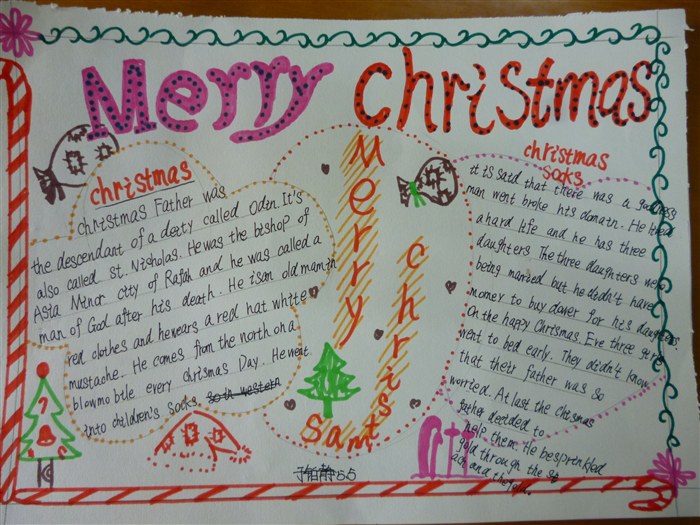 Merry christmas
christmas
christmas Father was
the descendant of a deity called Odin. It's
also called St. Nicholas. He was the bishop of
Asia Minor city of Rafah and he was called a
man of God after his death. He is an old man in
red clothes and he wears a red hat white
mustache. He comes from the north on a
blowmobile every chrismas Day. He went
into children's socks.
Merry
christ
Samts
85
christmas
socks
it is said that there was a
man went broke his domain. He lived
a hard life and he has three
daughters The three daughters were
being married but he didn't have
money to buy dower for his daughters.
On the happy Christmas Eve three girls
went to bed early. They didn't know
that their father was so
worried. At last the Chrismas
father decided to
help them. He besprinkled
gold through the
and the